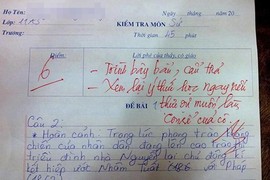 Họ Tên:
Lớp: 11A5
Trường:
Ngày tháng năm 20
KIỂM TRA MÔN Sử
Thời gian 45 phút
Điểm
6
Lời phê của thầy cô giáo
- Trình bày bẩn, cẩu thả
- Xem lại ý thức học ngay nếu
không muốn làm
ĐỀ BÀI
Câu 2:
* Hoàn cảnh: Trong lúc phong trào kháng
chiến của nhân dân đang lên cao
triều đình nhà Nguyễn lại chủ động kí
kết hiệp ước Nhâm Tuất với Pháp